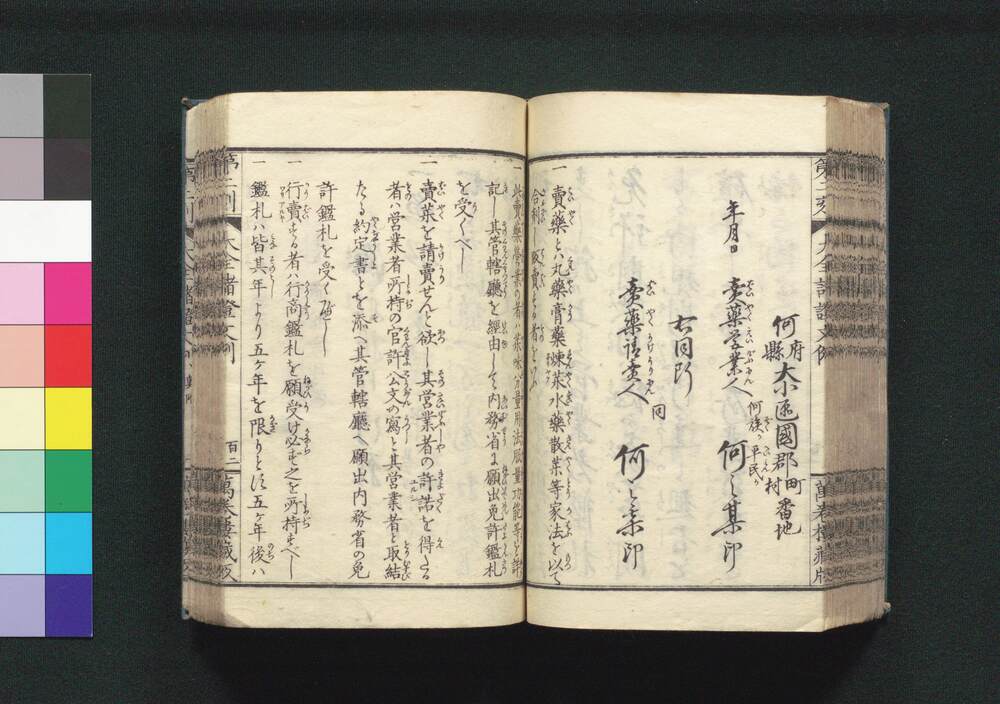 何府縣大小區國郡町村番地
賣藥営業人 何族カ平民カ 何之某印
年月日
右同所
賣藥請賣人 同 何之某印
一 賣藥とハ丸藥膏藥煉藥水藥散藥等家法を以て
合剤し販賣する者をいふ
一 此賣藥営業の者ハ藥味分量用法服量功能等を詳
記し其管轄廳を経由して内務省に願出免許鑑札
を受くべし
一 賣藥を請賣せんと欲し其営業者の許諾を得たる
者ハ営業者所持の官許公文の寫と其営業者と取結
たる約定書とを添へ其管轄廳へ願出内務省の免
許鑑札を受くべし
一 行賣する者ハ行商鑑札を願受け必ず之を所持すべし
一 鑑札ハ皆其年より五ケ年を限りとし五ケ年後ハ
大全諸證文例
百二
萬春樓藏版